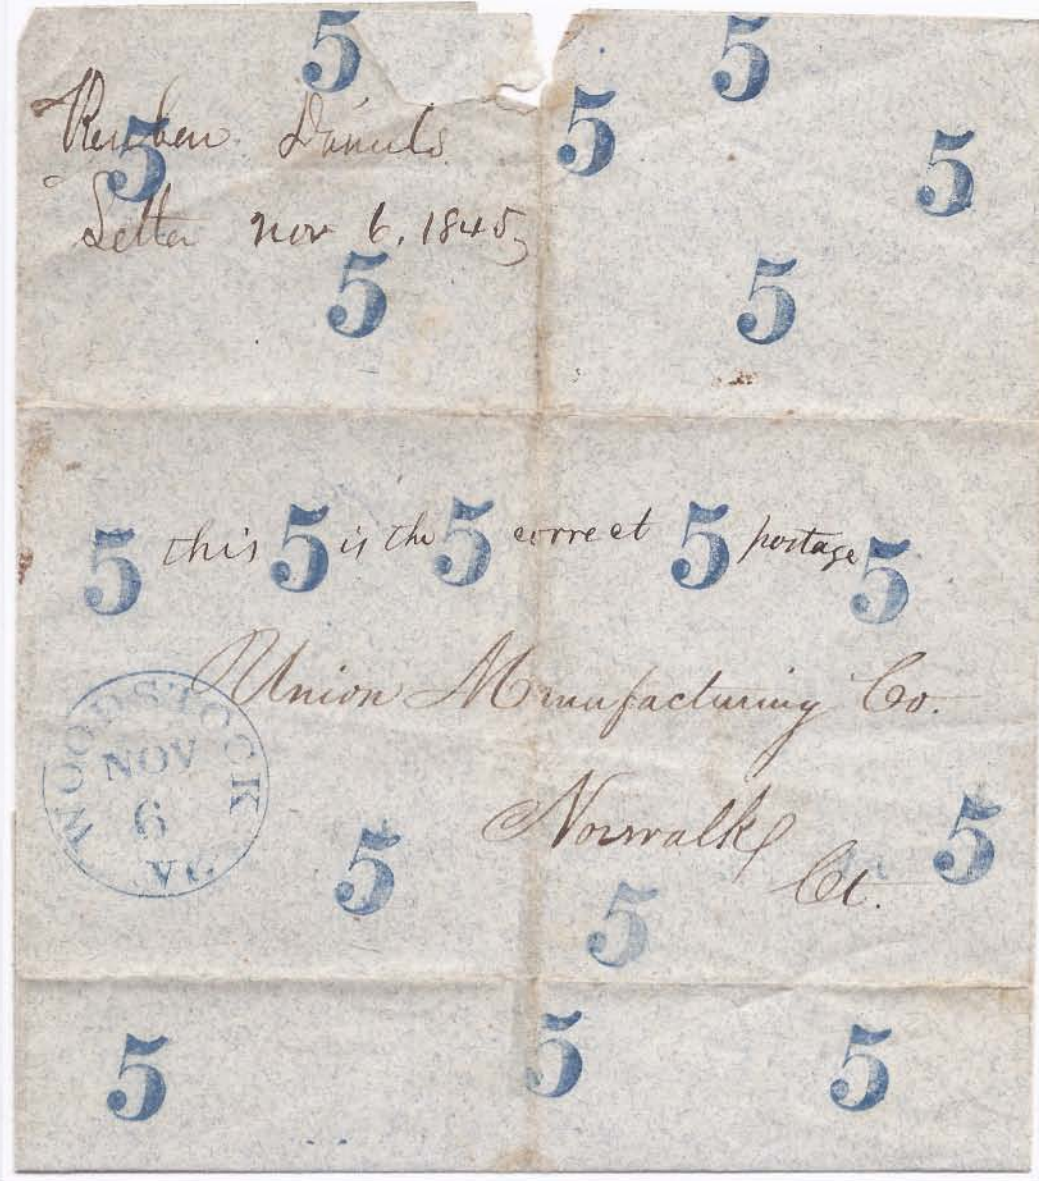 5 5
5 5
Reuben Daniels
5
Letter Nov 6, 1845
5 5
5 this 5 is the 5 correct 5 postage 5
Union Manufacturing Co.
WOODSTOCK
NOV
6
Vt.
Norwalk
Ct.
5 5
5
5 5 5